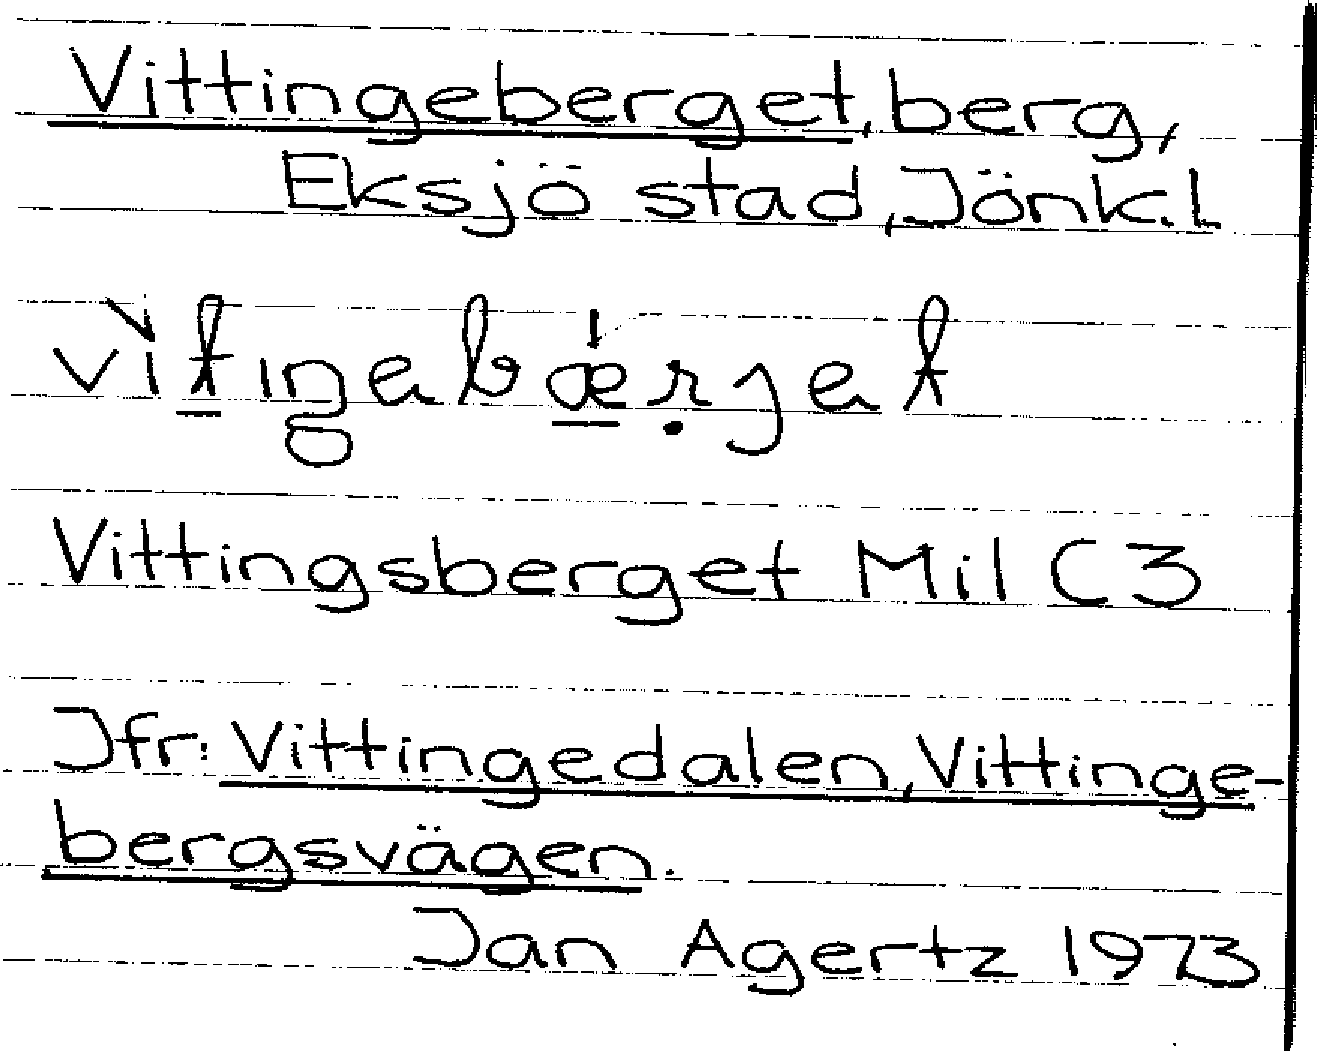 Vittingeberget, berg,
Eksjö stad, Jönk.l
vìt̲iŋəbæ̲rjət
Vittingsberget Mil C3
Jfr: Vittingedalen, Vittinge-
bergsvägen.
Jan Agertz 1973